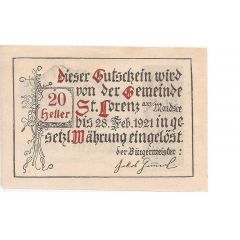 Dieser Gutschein wird
von der Gemeinde
20
Heller
St. Lorenz am Mondsee
bis 28. Feb. 1921 in ge
setzl Währung eingelöst.
der Bürgermeister: